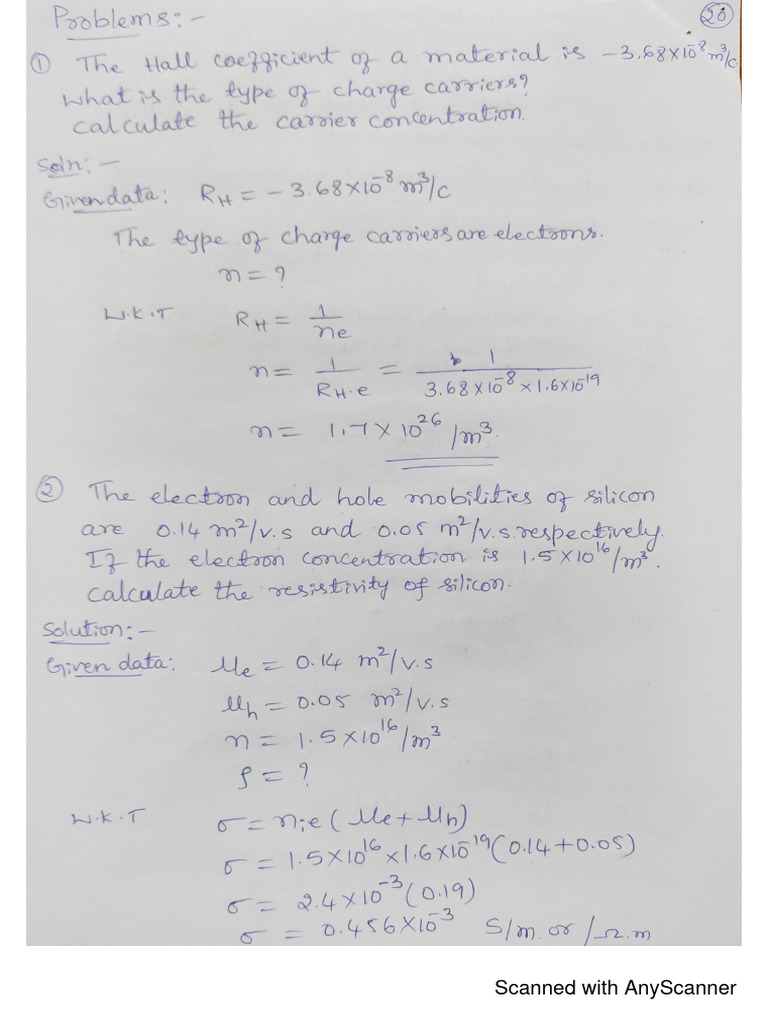 Problems:-
20
① The Hall coefficient of a material is -3.68×10⁻⁸ m³/c
What is the type of charge carriers?
calculate the carrier concentration.
Soln:-
Given data: R_H = -3.68×10⁻⁸ m³/c
The type of charge carriers are electrons.
n = ?
W.K.T R_H = 1/ne
n = 1/R_H.e = 1/3.68×10⁻⁸×1.6×10⁻¹⁹
n = 1.7×10²⁶ /m³.
② The electron and hole mobilities of silicon
are 0.14 m²/v.s and 0.05 m²/v.s. respectively.
If the electron concentration is 1.5×10¹⁶/m³.
calculate the resistivity of silicon.
Solution:-
Given data: μe = 0.14 m²/v.s
μh = 0.05 m²/v.s
n = 1.5×10¹⁶/m³
ρ = ?
W.K.T σ = nie(μe+μh)
σ = 1.5×10¹⁶×1.6×10⁻¹⁹(0.14+0.05)
σ = 2.4×10⁻³(0.19)
σ = 0.456×10⁻³ S/m. or /Ω.m
Scanned with AnyScanner